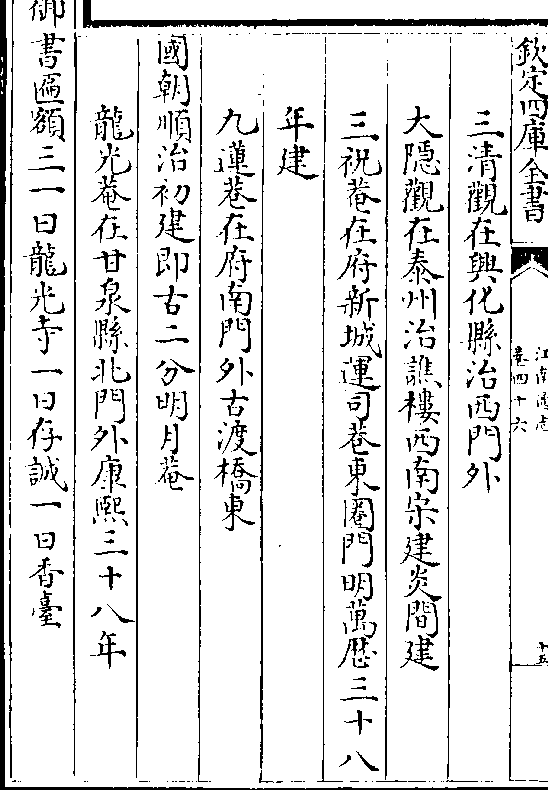 欽定四庫全書
江南通志
卷四十六
十五
三清觀在興化縣治西門外
大隱觀在泰州治譙樓西南宋建炎間建
三祝菴在府新城運司巷東圈門明萬厯三十八
年建
九蓮菴在府南門外古渡橋東
國朝順治初建即古二分明月菴
龍光菴在甘泉縣北門外康熙三十八年
御書匾額三一曰龍光寺一曰存誠一曰香臺